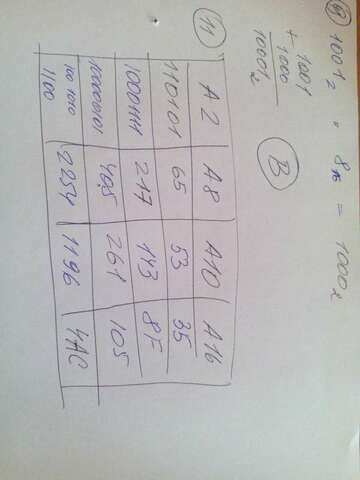 1001₂ , 8₁₆ = 1000₂
+ 1001
1000
10001₂
B
11
A2 A8 A10 A16
110101 65 53 35
10001111 217 143 8F
100000101 405 261 105
100 1010 2254 1196 4AC
1100